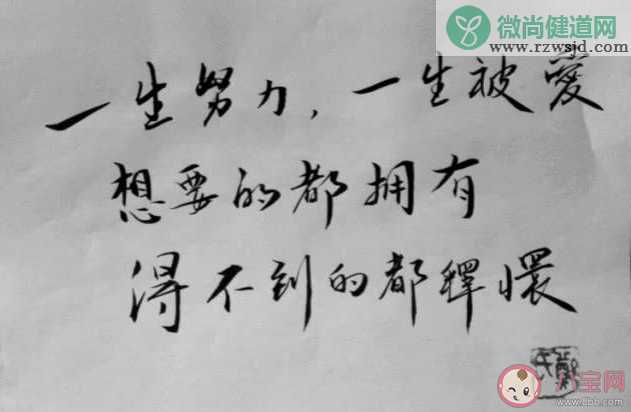 微尚健道网
www.rzwsjd.com
一生努力，一生被愛
想要的都拥有
得不到的都释懷
www.Lebb.com